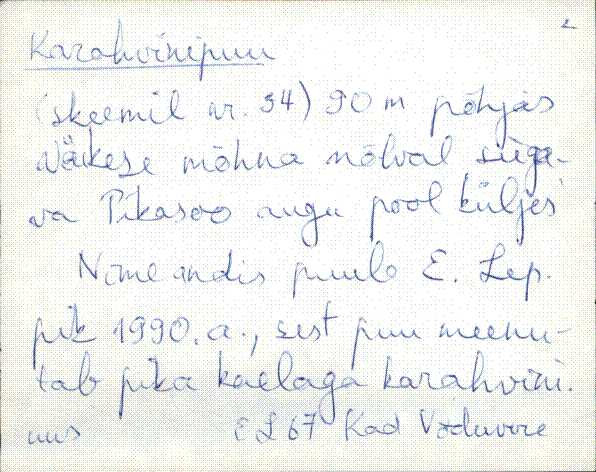 Karahvinipuu
(skeemil nr. 34) 90 m põhjas
väikese mõhna nõlval süga-
va Pikasoo augu pool küljes
Nime andis puule E. Lep-
pik 1990. a., sest puu meenu-
tab pika kaelaga karahvini.
E L 67 Kad